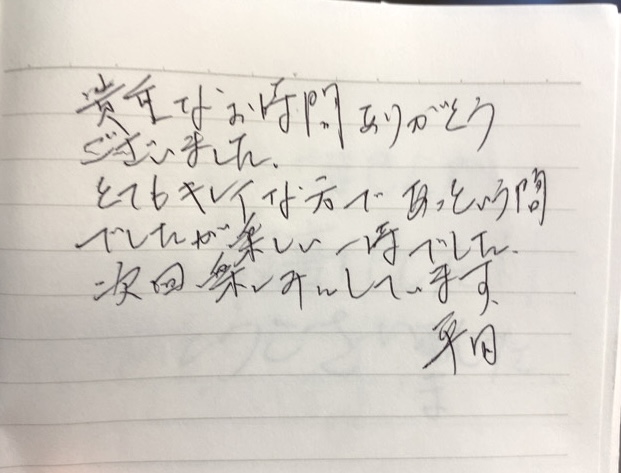 貴重なお時間ありがとう
ございました。
とてもキレイな方であっという間
でしたが楽しい一時でした。
次回楽しみにしています。
平田